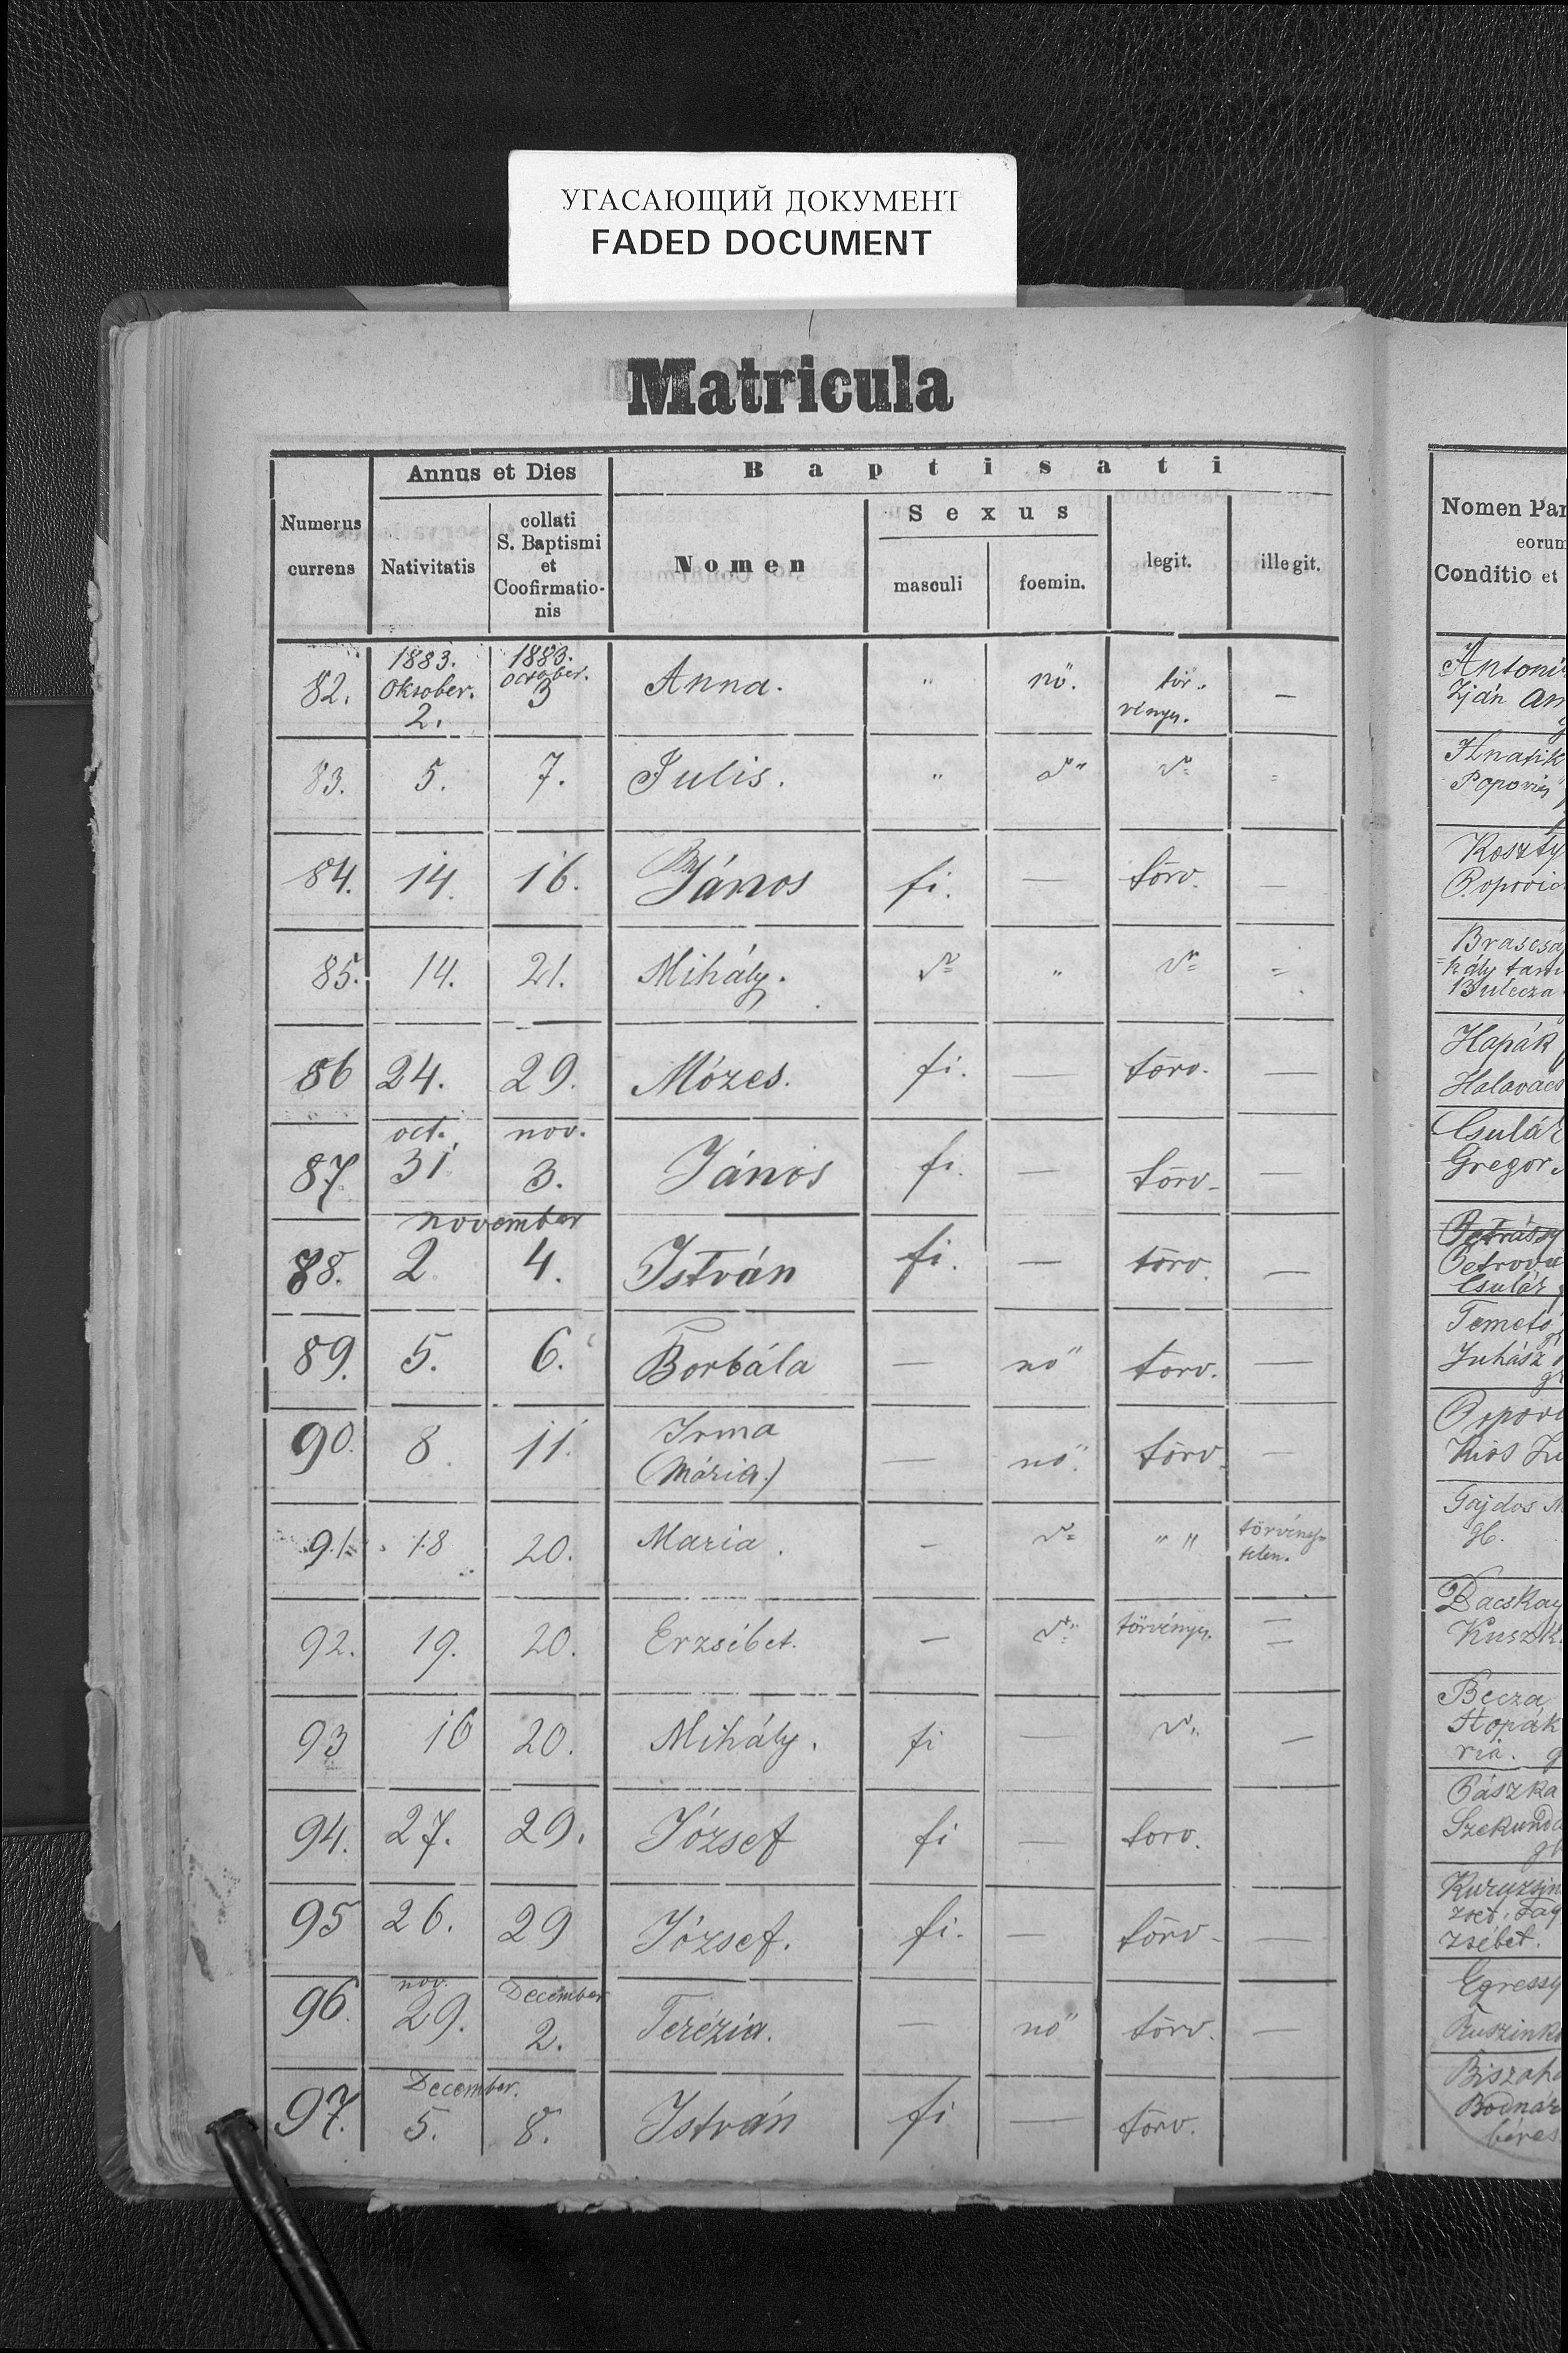 УГАСАЮЩИЙ ДОКУМЕНТ
FADED DOCUMENT
Matricula
Numerus currens
Annus et Dies
Nativitatis
collati S. Baptismi et Coofirmationis
Baptisati
Nomen
Sexus
masculi
foemin.
legit.
illegit.
82. 1883. Oktober. 2. 1883. October. 3 Anna. " nö. tör- vényes. —
83. 5. 7. Julis. " "
84. 14. 16. János fi. — törv. —
85. 14. 21. Mihály. " =
86 24. 29. Mózes. fi. — törv. —
87. oct. 31 nov. 3. János fi. — törv- —
november
88. 2 4. István fi. — törv. —
89. 5. 6. Borbála — nö törv. —
90. 8. 11. Irma (Mária.) — nö. törv. —
91. 18 20. Maria. – " " törvény- telen.
92. 19. 20. Erzsébet. — törvényes. —
93 16 20. Mihály. fi — —
94. 27. 29. József fi — törv.
95 26. 29 József. fi. — törv- —
96. nov. 29. December 2. Terézia. — nö törv. —
97. December. 5. 8. István fi — törv.
Nomen Par
eorum
Conditio et
Antoni
Zján An
Hnatik
Popovics
Koszty
Popovic
Brascsá
Bulecza
Hapák
Halavacs
Csulák
Gregor
Petrásy
Petrov
Csulár
Temető
Juhász
Popovi
Kios Zu
Gajdos M
gk.
Dacskay
Kuszk
Becza
Hopák
ria. g
Pászka
Szekund
Kuruzsin
zsébet.
Egressy
Ruszink
Biszaha
Bodnár
béres